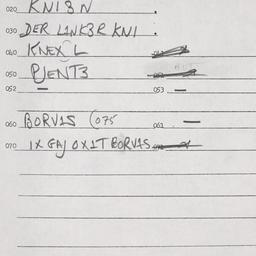 020 KNI3N .
030 DER L1NK3R KNI .
040 KNEX L
050 PJENT3
052 — 053 —
060 BORV1S (075 061 —
070 1X GAJ OX1T BORV1S